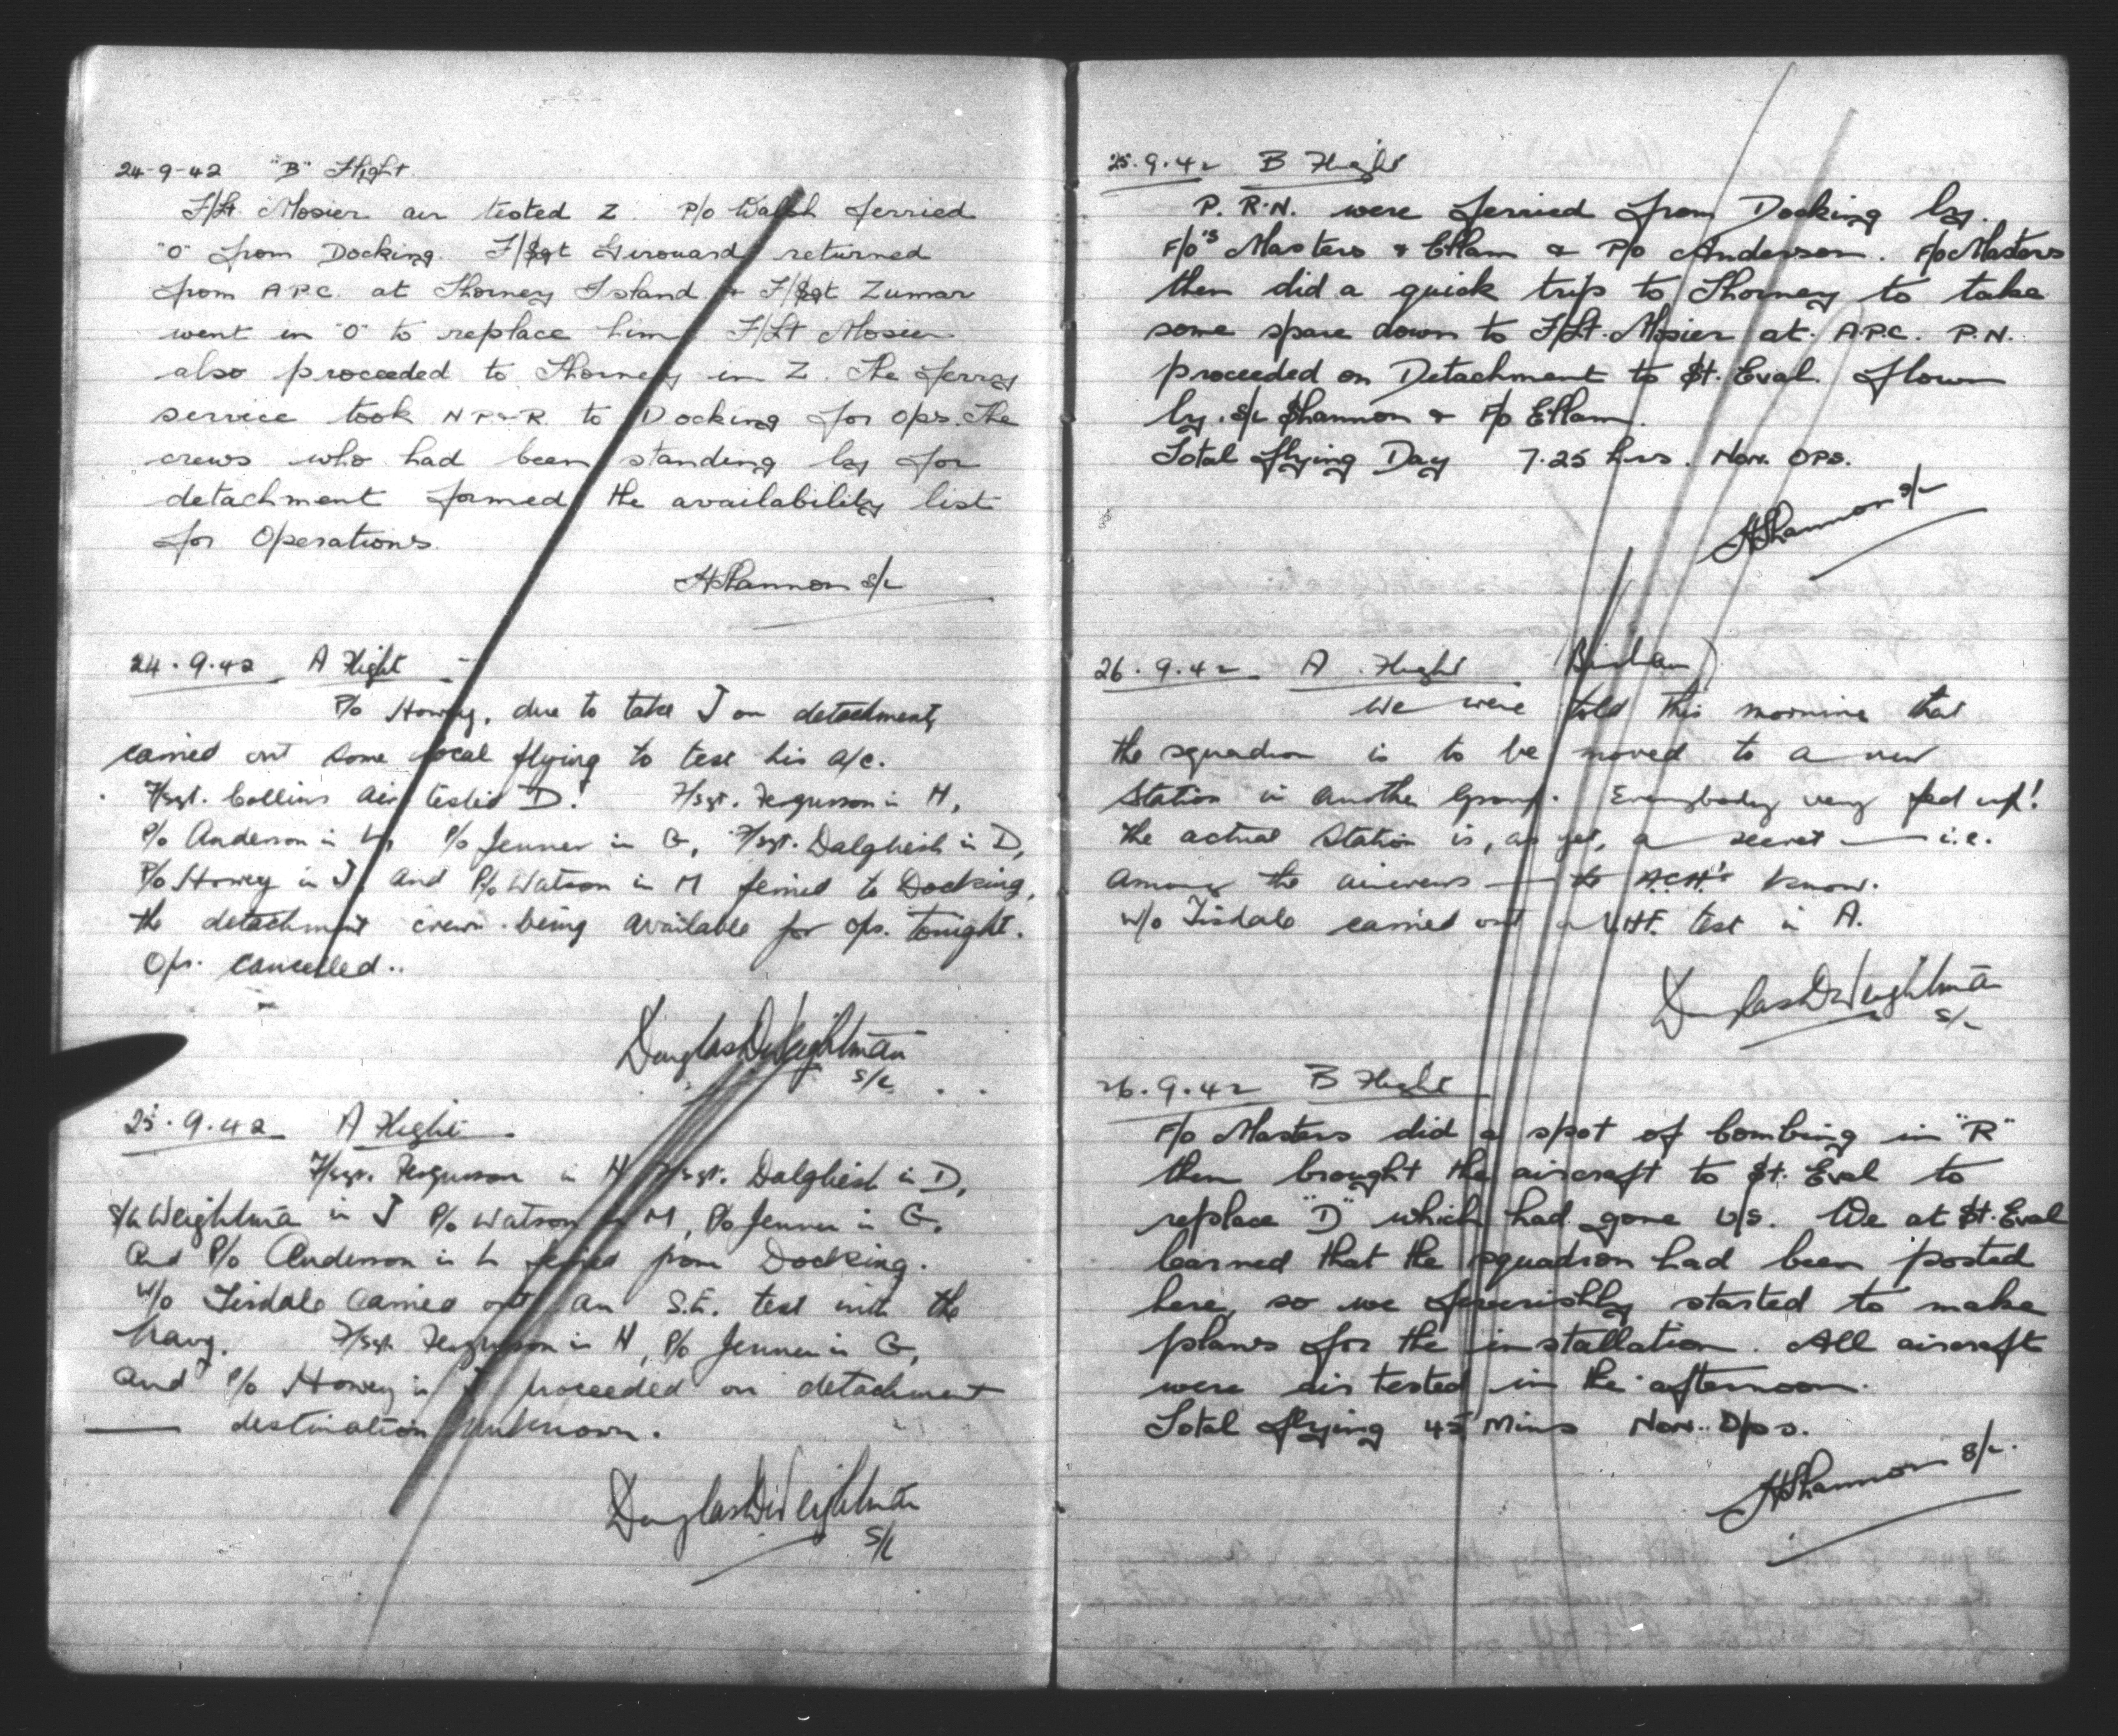 24-9-42 "B" Flight
F/Lt. Mosier air tested Z. P/o Walsh ferried
"O" from Docking. F/Sgt Girouard returned
from A.P.C. at Thorney Island & F/Sgt Zumar
went in "O" to replace him. F/Lt Mosier
also proceeded to Thorney in Z. The ferry
service took N P & R. to Docking for ops. The
crews who had been standing by for
detachment formed the availability list
for Operations.
HShannon S/L
24.9.42 A Flight
P/o Howey, due to take J on detachment,
carried out some local flying to test his a/c.
F/sgt. Collins air tested D. F/sgt. Fergusson in H,
P/o Anderson in L, P/o Jenner in G, F/sgt. Dalgliesh in D,
P/o Howey in J, and P/o Watson in M ferried to Docking,
the detachment crews being available for ops. tonight.
Ops. cancelled..
Douglas D Weightman
S/L
25.9.42 A Flight
F/sgt. Fergusson in H F/sgt. Dalgliesh in D,
S/L Weightman in J P/o Watson in M, P/o Jenner in G,
and P/o Anderson in L ferried from Docking.
W/o Tisdale carried out an S.E. test with the
Navy. F/sgt. Fergusson in H, P/o Jenner in G,
and P/o Howey in J proceeded on detachment
— destination unknown.
Douglas D Weightman
S/L
25.9.42 B Flight
P. R.N. were ferried from Docking by.
F/o's Masters & Ellam & P/o Anderson. F/o Masters
then did a quick trip to Thorney to take
some spare down to F/Lt. Mosier at A.P.C. P.N.
proceeded on Detachment to St. Eval. flown
by S/L Shannon & F/o Ellam.
Total flying Day 7.25 hrs. Non. OPS.
HShannon S/L
26.9.42 A Flight Bircham
We were told this morning that
the squadron is to be moved to a new
Station in another Group. Everybody very fed up!
The actual Station is, as yet, a secret — i.e.
among the aircrews — the A.C.H's know.
W/o Tisdale carried out a V.H.F. test in A.
Douglas D Weightman
S/L
26.9.42 B Flight
F/o Masters did a spot of bombing in "R"
then brought the aircraft to St. Eval to
replace "D" which had gone U/S. We at St. Eval
learned that the squadron had been posted
here, so we feverishly started to make
plans for the installation. All aircraft
were air tested in the afternoon.
Total flying 45 Mins Non. Ops.
HShannon S/L.